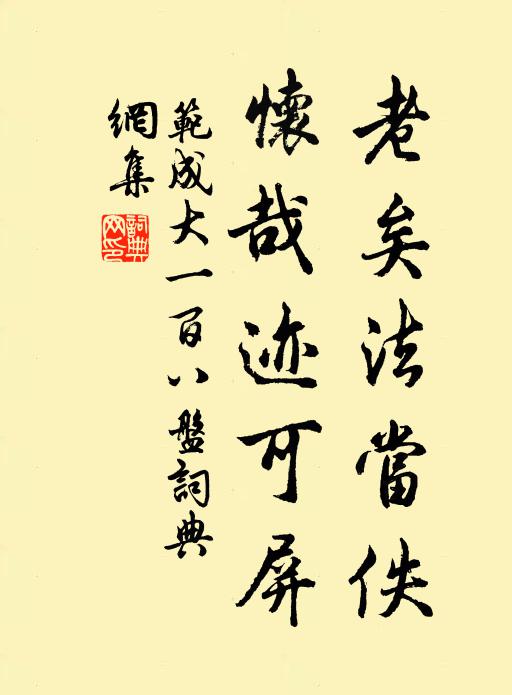 老矣法當佚
懷哉迹可屏
範成大一百八盤詞典
網集
詞典
网印